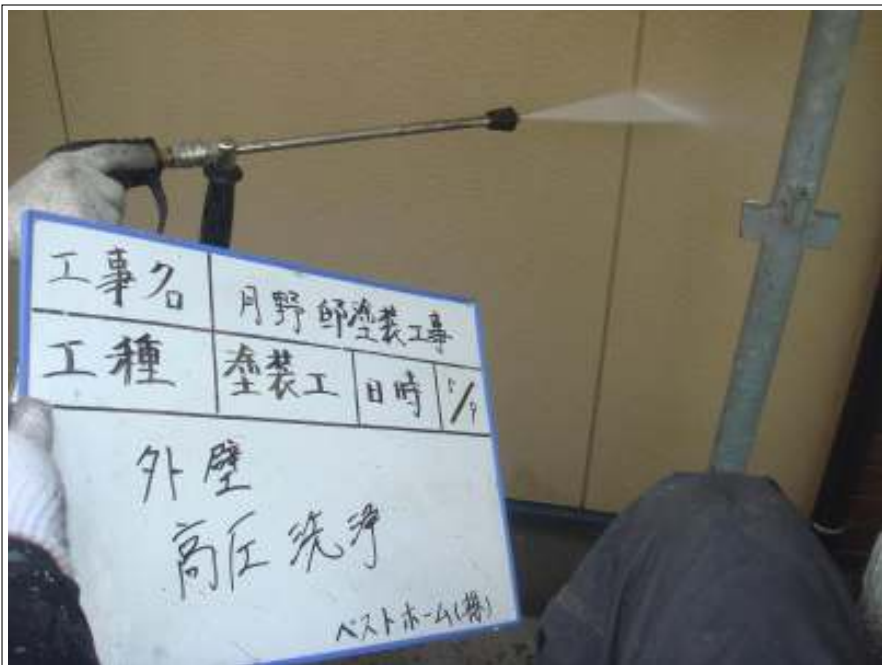 工事名 月野邸塗装工事
工種 塗装工 日時 5/9
外壁
高圧洗浄
ベストホーム(株)